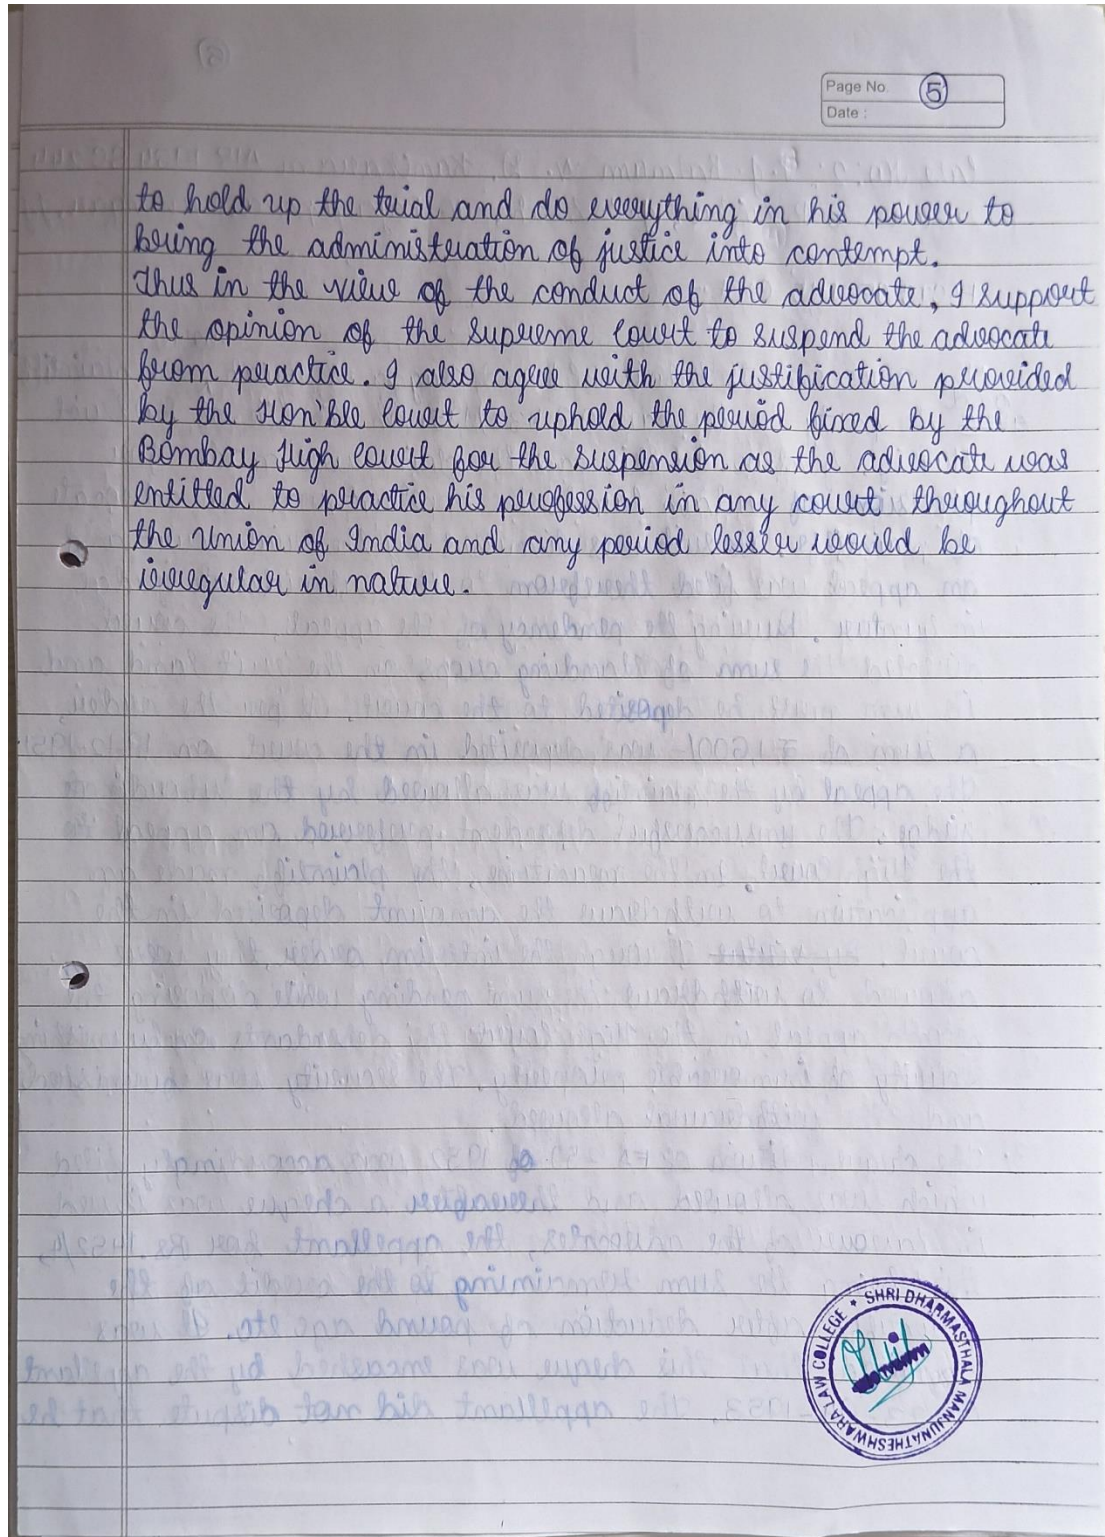 Page No. 5
Date :
to hold up the trial and do everything in his power to
bring the administration of justice into contempt.
Thus in the view of the conduct of the advocate, I support
the opinion of the Supreme Court to suspend the advocate
from practice. I also agree with the justification provided
by the Hon'ble Court to uphold the period fixed by the
Bombay High Court for the suspension as the advocate was
entitled to practice his profession in any court throughout
the Union of India and any period lesser would be
irregular in nature.
SHRI DHARMASTHALA MANJUNATHESHWARA LAW COLLEGE